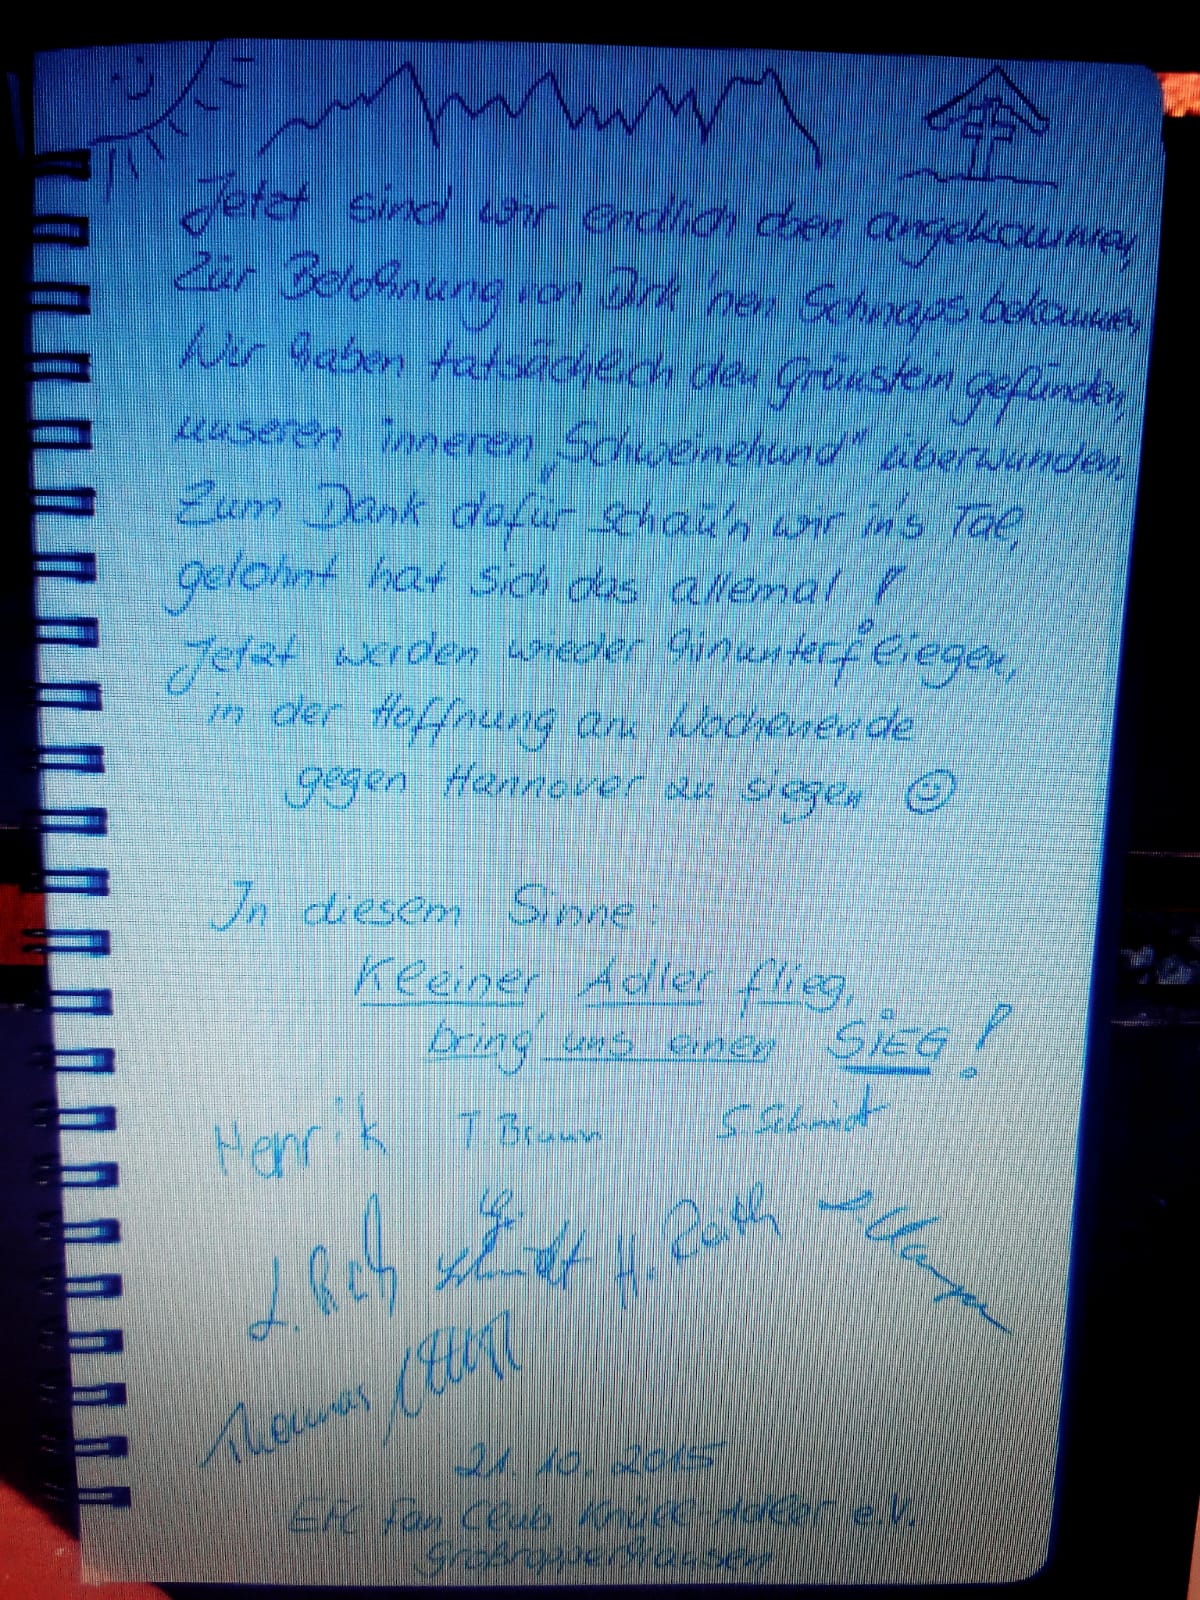 Jetzt sind wir endlich oben angekommen,
Zur Belohnung von Dirk 'nen Schnaps bekommen,
Wir haben tatsächlich den Grünstein gefunden,
unseren inneren „Schweinehund" überwunden,
Zum Dank dafür schau'n wir in's Tal,
gelohnt hat sich das allemal!
Jetzt werden wieder hinunterfliegen,
in der Hoffnung am Wochenende
gegen Hannover zu siegen
In diesem Sinne:
Kleiner Adler flieg,
bring uns einen SIEG!
Henrik T. Braun S. Schmidt
Schmidt H. Räth
Thomas
21.10.2015
EFC Fan Club Knüll-Adler e.V.
Großropperhausen